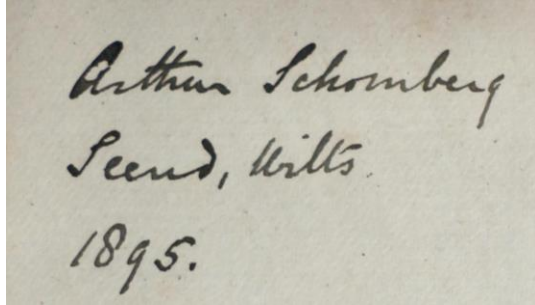 Arthur Schomberg
Seend, Wilts.
1895.